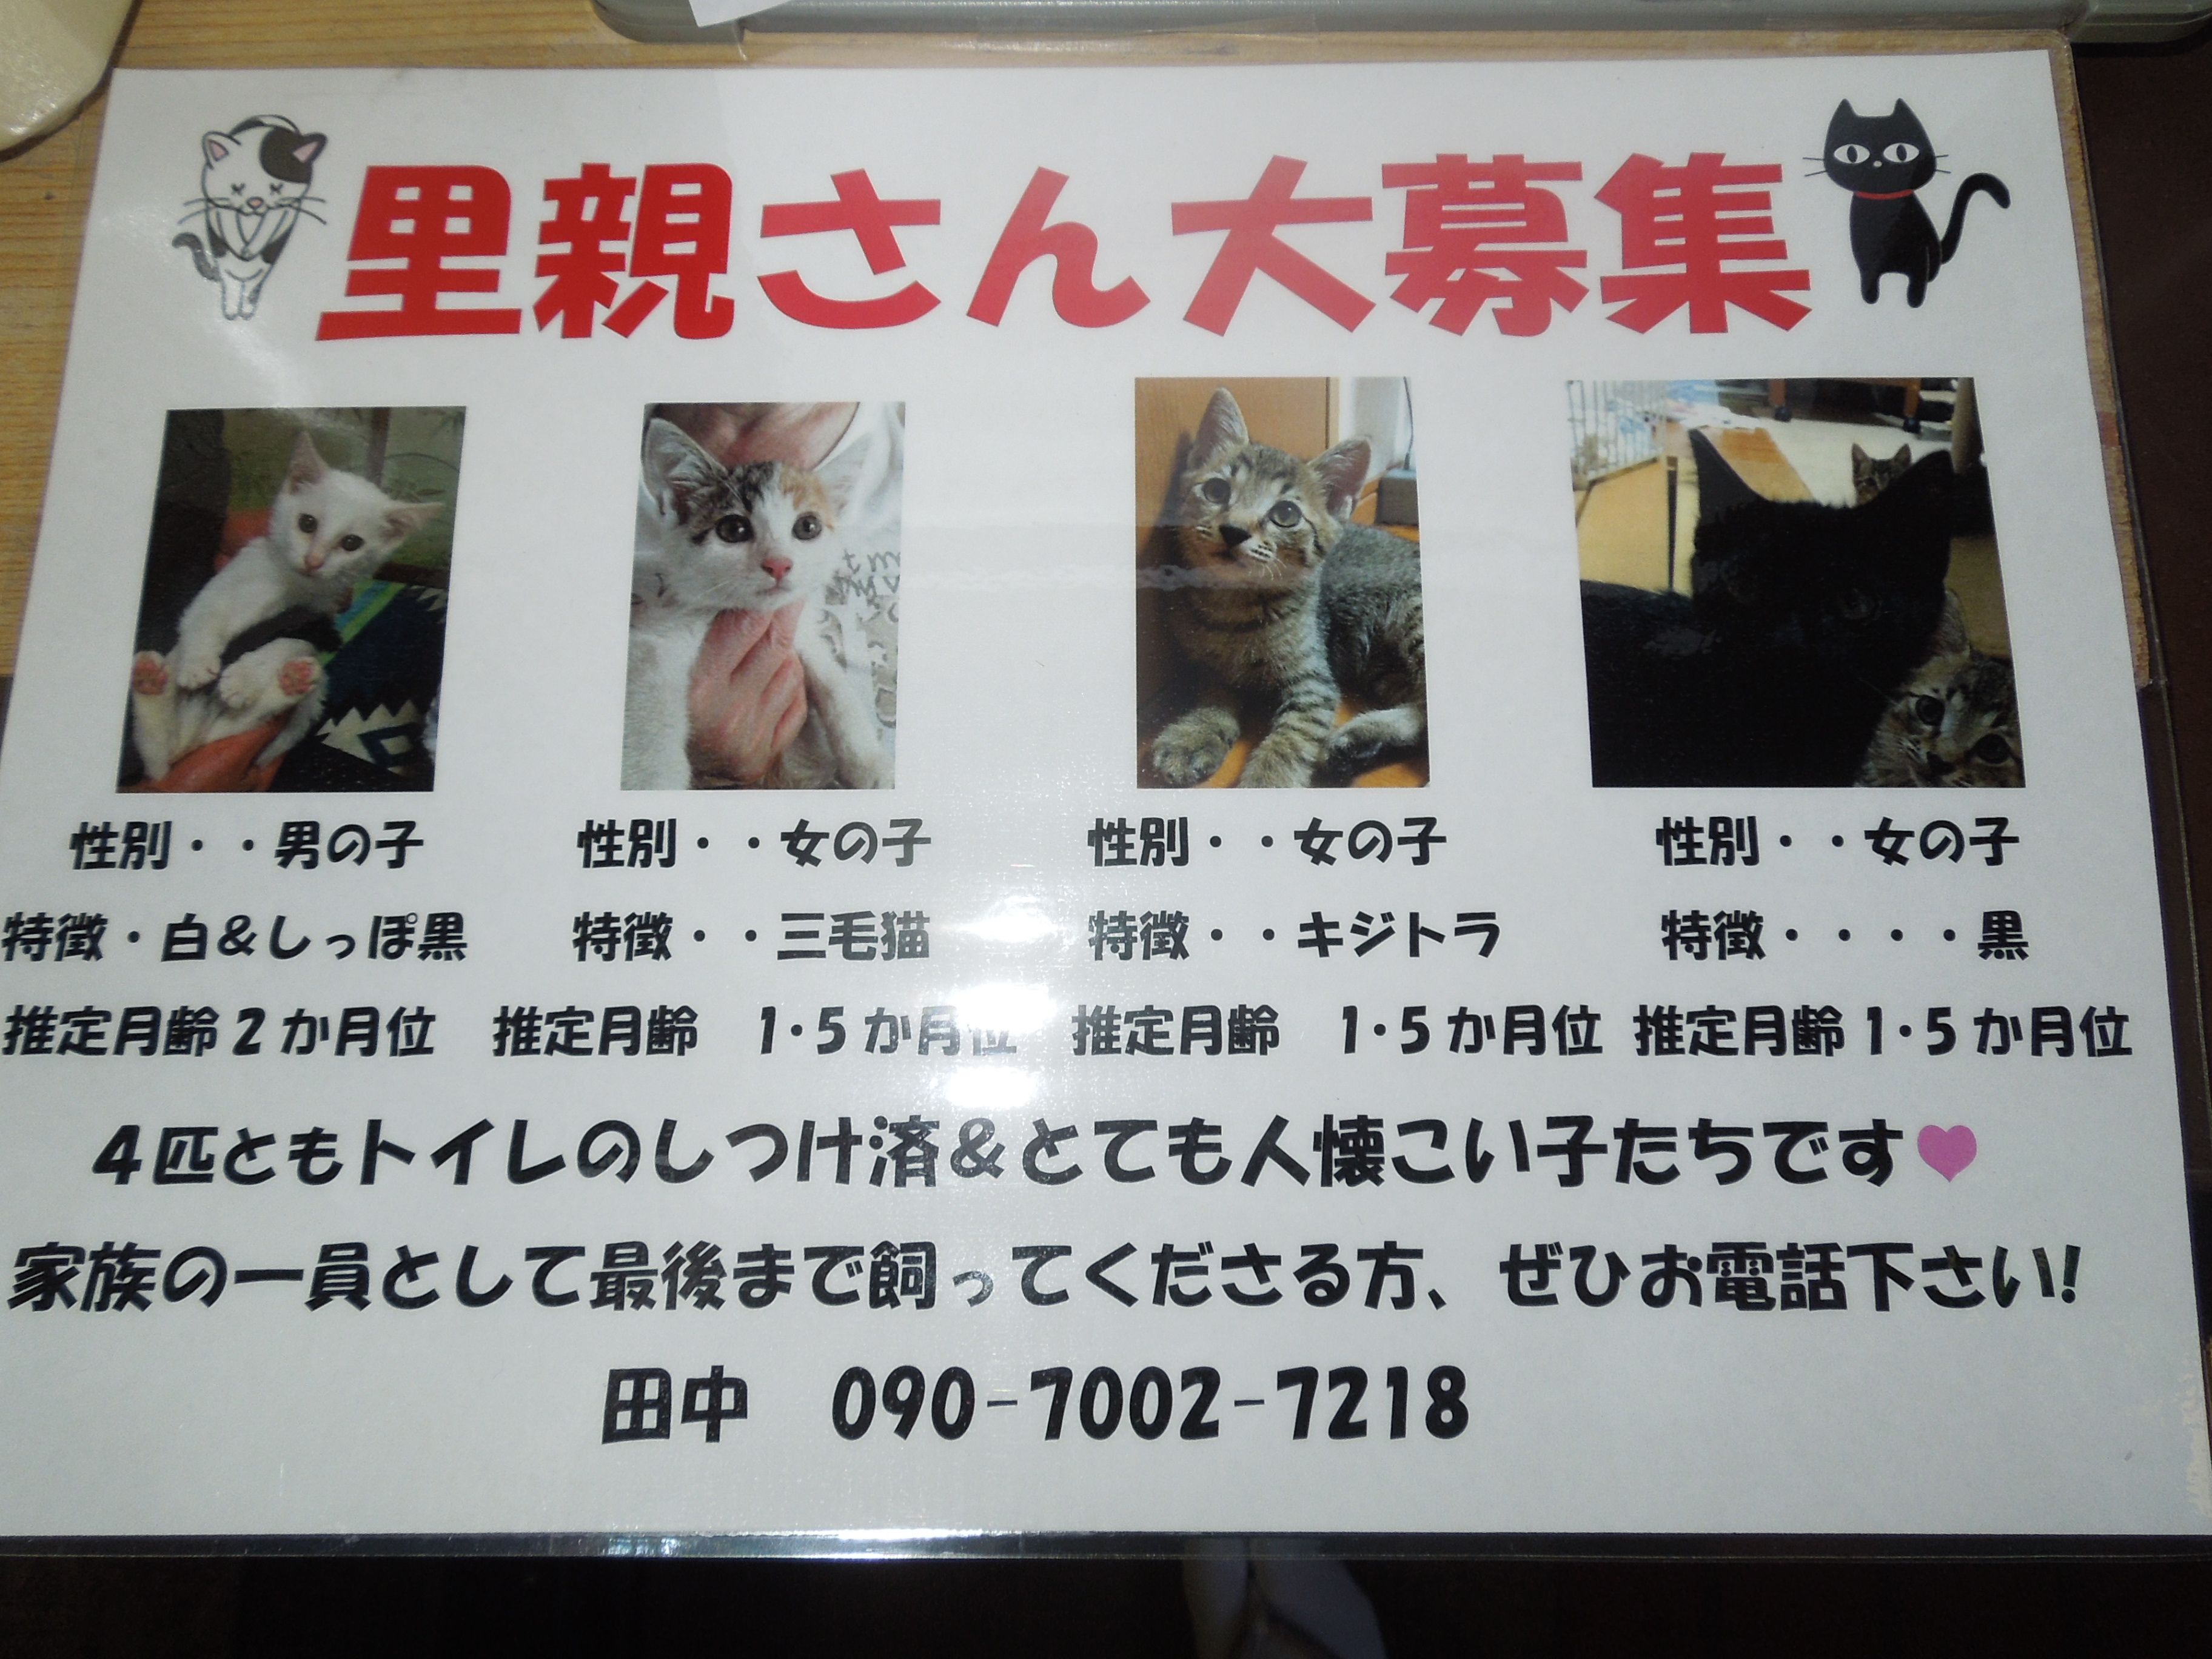 里親さん大募集
性別・・男の子 性別・・女の子 性別・・女の子 性別・・女の子
特徴・白＆しっぽ黒 特徴・・三毛猫 特徴・・キジトラ 特徴・・・・黒
推定月齢２か月位 推定月齢　１・５か月位 推定月齢　１・５か月位 推定月齢１・５か月位
４匹ともトイレのしつけ済＆とても人懐こい子たちです♥
家族の一員として最後まで飼ってくださる方、ぜひお電話下さい！
田中　090-7002-7218